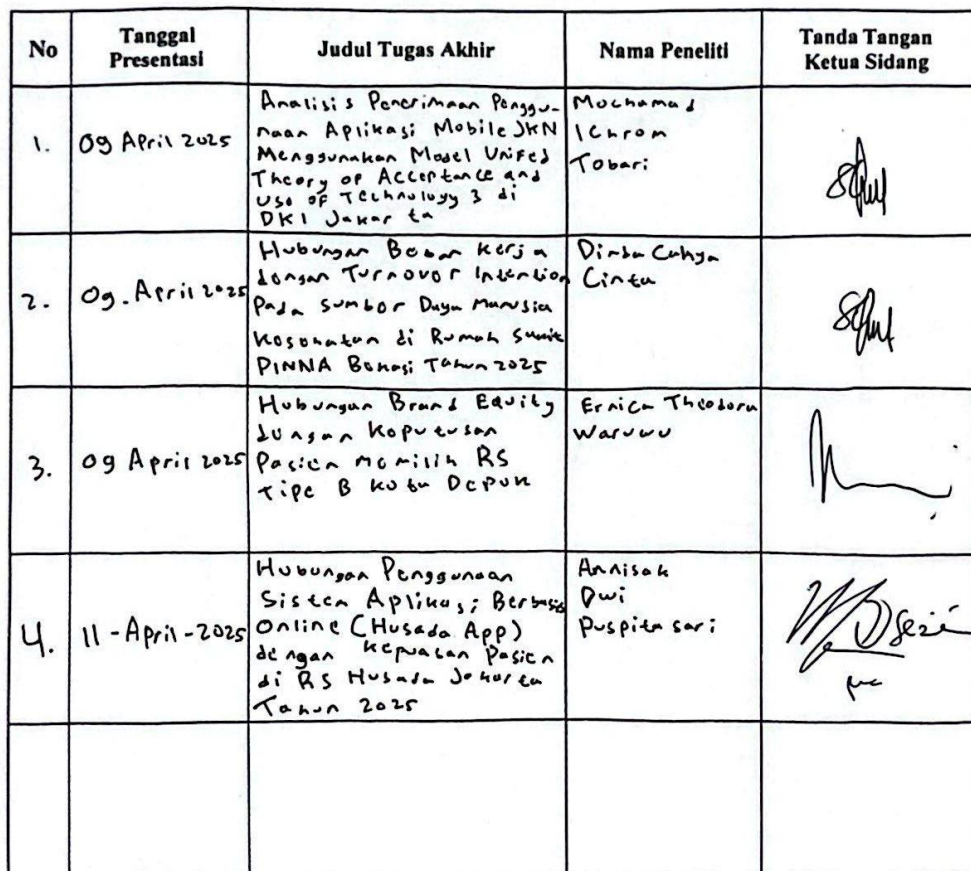 No
Tanggal
Presentasi
Judul Tugas Akhir
Nama Peneliti
Tanda Tangan
Ketua Sidang
1.
09 April 2025
Analisis Penerimaan Penggu-
naan Aplikasi Mobile JKN
Menggunakan Model Unified
Theory of Acceptance and
Use of Technology 3 di
DKI Jakarta
Mochamad
Ichrom
Tobari
2.
09. April 2025
Hubungan Beban Kerja
dengan Turnover Intention
Pada Sumber Daya Manusia
Kesehatan di Rumah Sakit
PINNA Bekasi Tahun 2025
Cahya
Cinta
3.
09 April 2025
Hubungan Brand Equity
dengan Keputusan
Pasien Memilih RS
Tipe B Kota Depok
Ernica Theodora
Waruwu
4.
11-April-2025
Hubungan Penggunaan
Sistem Aplikasi Berbasis
Online (Husada App)
dengan Kepuasan Pasien
di RS Husada Jakarta
Tahun 2025
Annisak
Dwi
Puspita sari